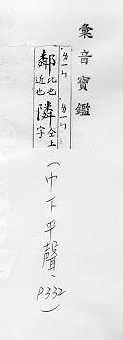 彙音寶鑑
鄰 比也 近也 隣 仝上字
（中下平聲、P332）